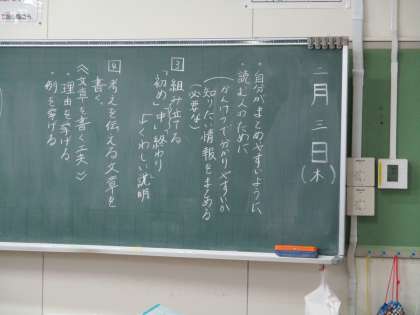 二月三日(木)
・自分がまとめやすいように
・読む人のために
(かんけつで分かりやすいか
知りたい情報をまとめる
(必要な)
③ 組み立てる
「初め」「中」「終わり」
くわしい説明
④ 考えを伝える文章を
書く。
《文章を書く工夫》
・理由を挙げる
・例を挙げる